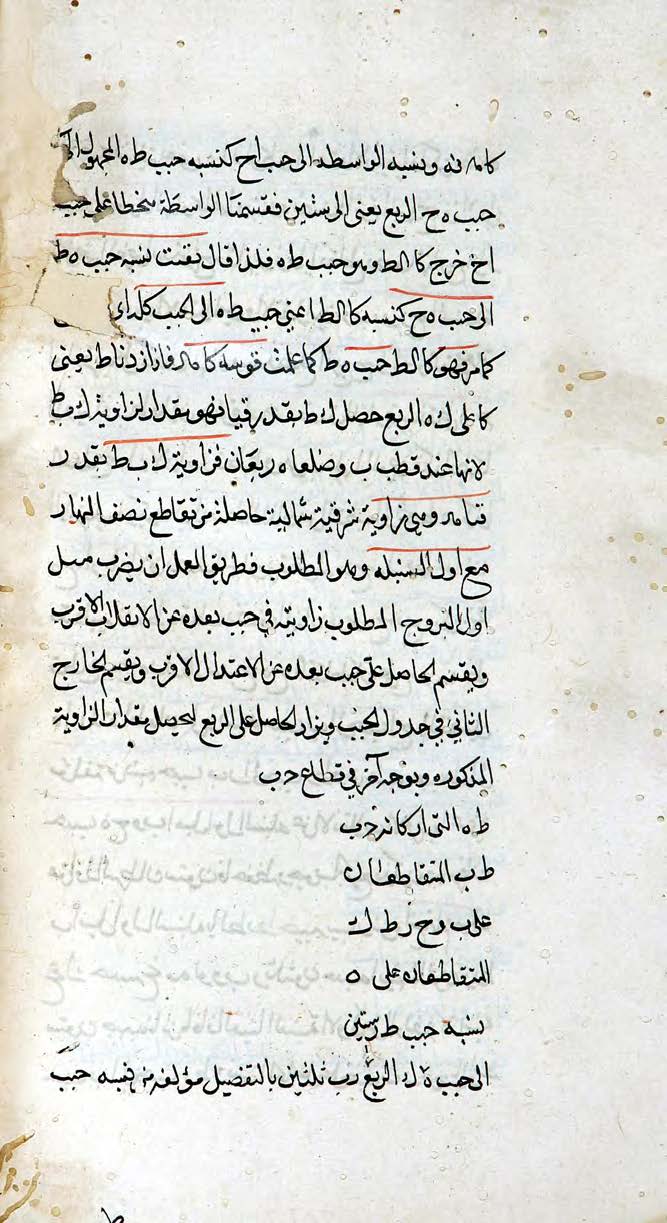 كا مه نه ونسبة الواسطة الى جيب اح كنسبة جيب طه المجهول الى
جيب ه ح الربع يعنى الى ستين فقسمنا الواسطة منحطا على جيب
اح خرج كا لط وهو جيب طه فلذا قال بقيت نسبة جيب ه ط
الى جيب ه ح كنسبة كا لط اعنى جيب طه الى الجيب كله
كما مر فهو كا لط جيب ه ط كما علمت قوسه كا مه فاذا زدنا ط يعنى
كا على ك ه الربع حصل ك ط بقدر قيا فهو مقدار لزاوية ك ب ط
لانها عند قطب ب وضلعاه ربعان فزاوية ك ب ط بقدر
قيا مه وهي زاوية شرقية شمالية حاصلة من تقاطع نصف النهار
مع اول السنبله وهو المطلوب فطريق العمل ان يضرب ميل
اول البروج المطلوب زاويته في جيب بعده عن الانقلاب الاقرب
ويقسم الحاصل على جيب بعده عن الاعتدال الاقرب ويقسم الخارج
الثاني في جدول الجيب ويزاد الحاصل على الربع ليحصل مقدار الزاوية
المذكوره وبوجه آخر في قطاع د ب
ط ه التى اركانه د ب
ط ب المتقاطعان
على ب و ح ر ط ك
المتقاطعان على ه
نسبة جيب ط ر ستين
الى جيب ه ك الربع رب ثلثين بالتفضيل مؤلفة من نسبة جيب
ط